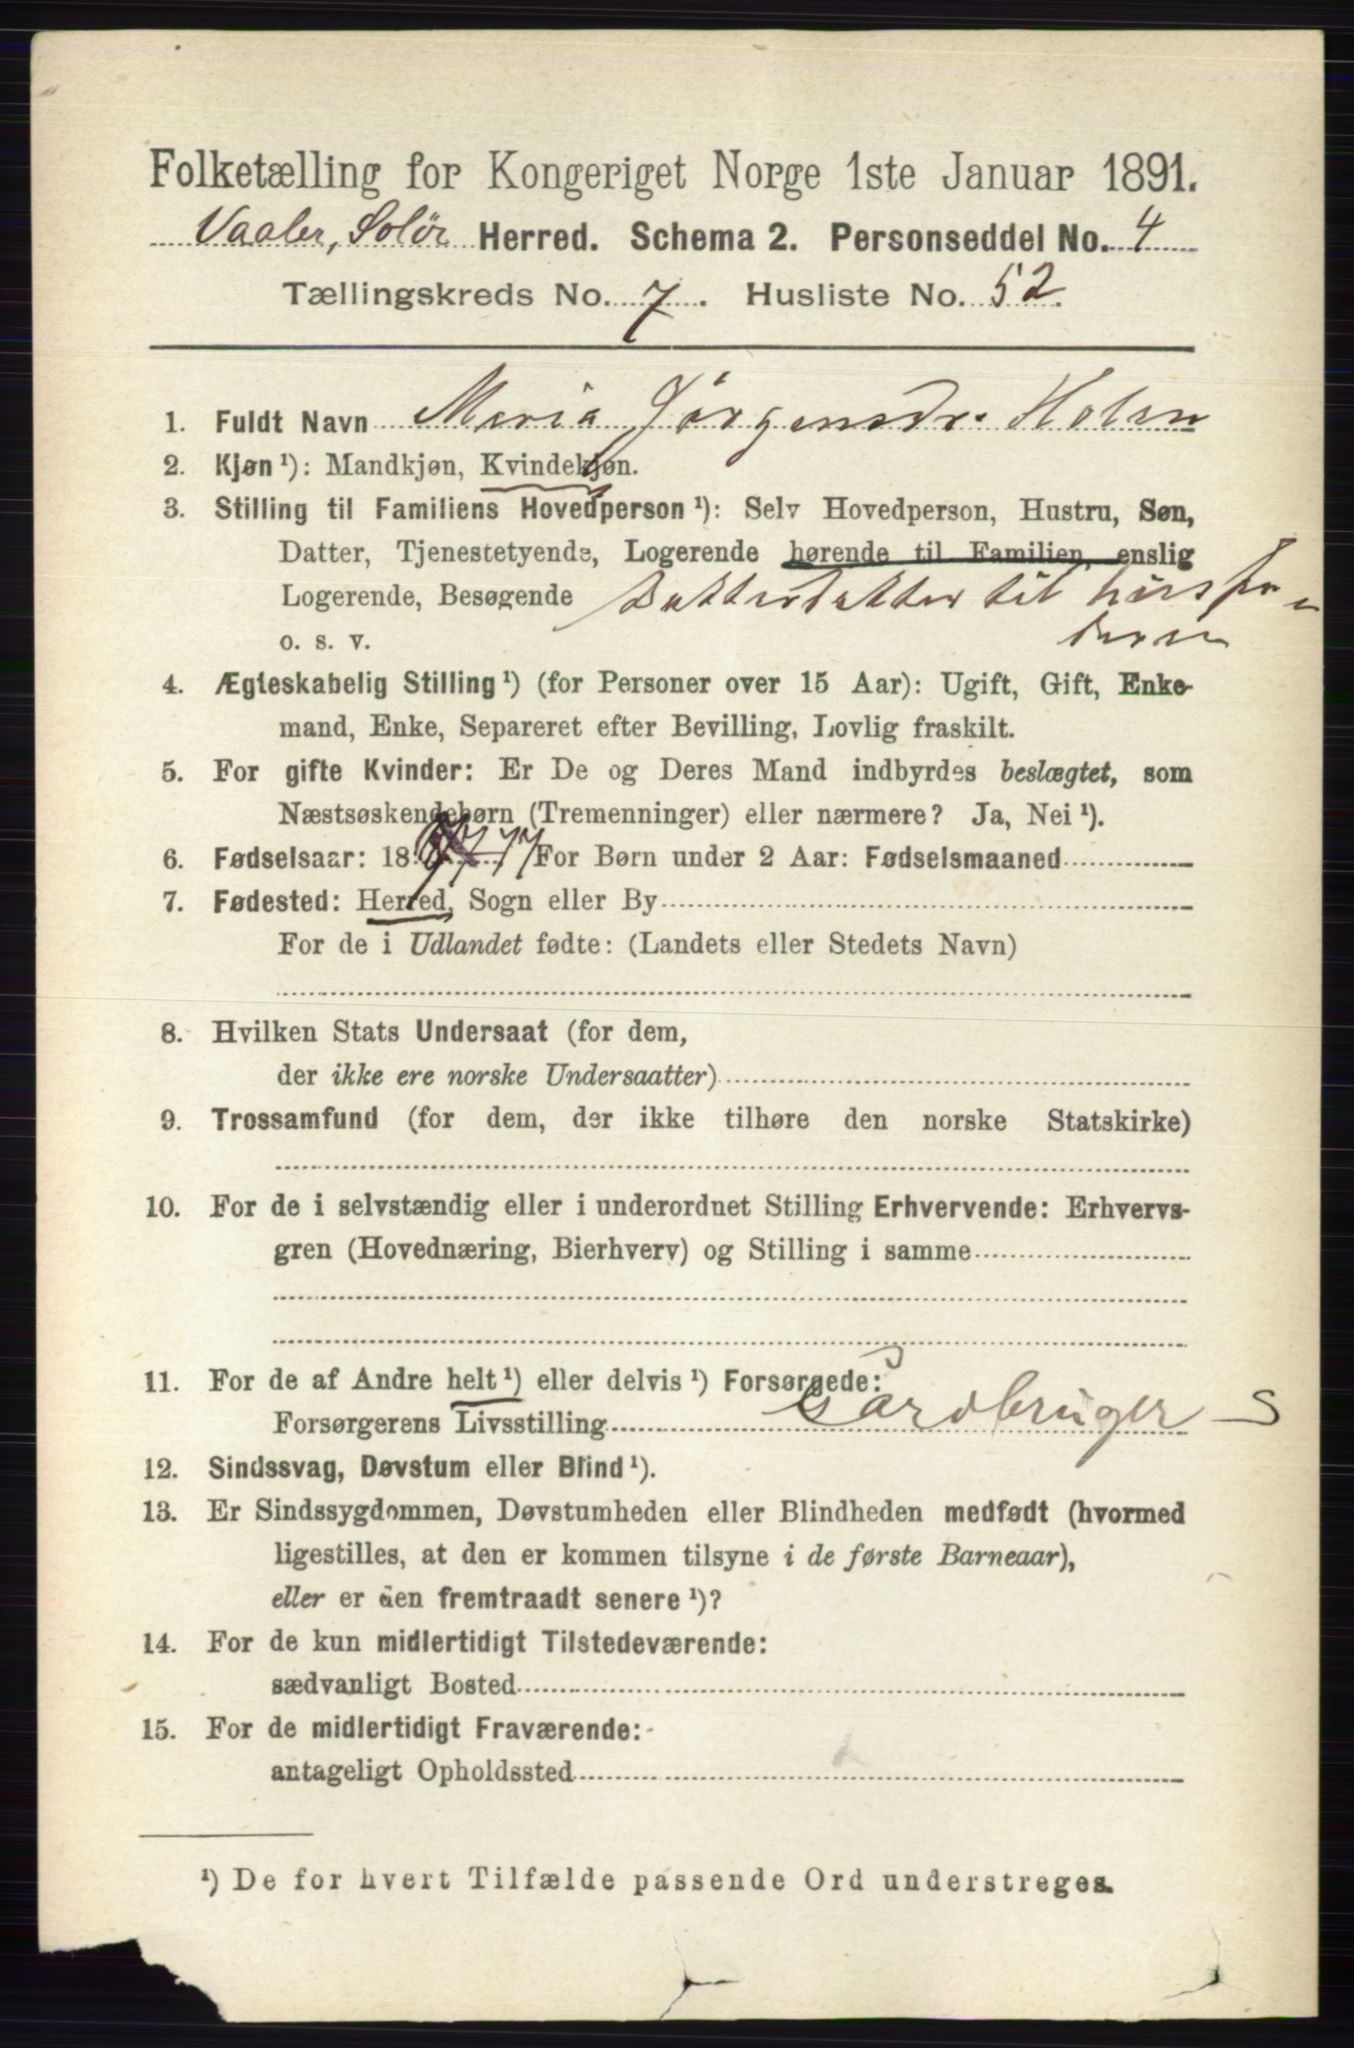 Folketælling for Kongeriget Norge 1ste Januar 1891.
Vaaler, Solør Herred. Schema 2. Personseddel No. 4
Tællingskreds No. 7. Husliste No. 52.
1. Fuldt Navn Maria Jørgensdr. Holen
2. Kjøn ¹): Mandkjøn, Kvindekjøn.
3. Stilling til Familiens Hovedperson ¹): Selv Hovedperson, Hustru, Søn,
Datter, Tjenestetyende, Logerende hørende til Familien, enslig
Logerende, Besøgende Datterdatter til husfa-
o. s. v. deren
4. Ægteskabelig Stilling ¹) (for Personer over 15 Aar): Ugift, Gift, Enke-
mand, Enke, Separeret efter Bevilling, Lovlig fraskilt.
5. For gifte Kvinder: Er De og Deres Mand indbyrdes beslægtet, som
Næstsøskendebørn (Tremenninger) eller nærmere? Ja, Nei ¹).
6. Fødselsaar: 18 77 For Børn under 2 Aar: Fødselsmaaned
7. Fødested: Herred, Sogn eller By
For de i Udlandet fødte: (Landets eller Stedets Navn)
8. Hvilken Stats Undersaat (for dem,
der ikke ere norske Undersaatter)
9. Trossamfund (for dem, der ikke tilhøre den norske Statskirke)
10. For de i selvstændig eller i underordnet Stilling Erhvervende: Erhvervs-
gren (Hovednæring, Bierhverv) og Stilling i samme
11. For de af Andre helt ¹) eller delvis ¹) Forsørgede:
Forsørgerens Livsstilling Gardbruger S
12. Sindssvag, Døvstum eller Blind ¹).
13. Er Sindssygdommen, Døvstumheden eller Blindheden medfødt (hvormed
ligestilles, at den er kommen tilsyne i de første Barneaar),
eller er den fremtraadt senere ¹)?
14. For de kun midlertidigt Tilstedeværende:
sædvanligt Bosted
15. For de midlertidigt Fraværende:
antageligt Opholdssted
¹) De for hvert Tilfælde passende Ord understreges.